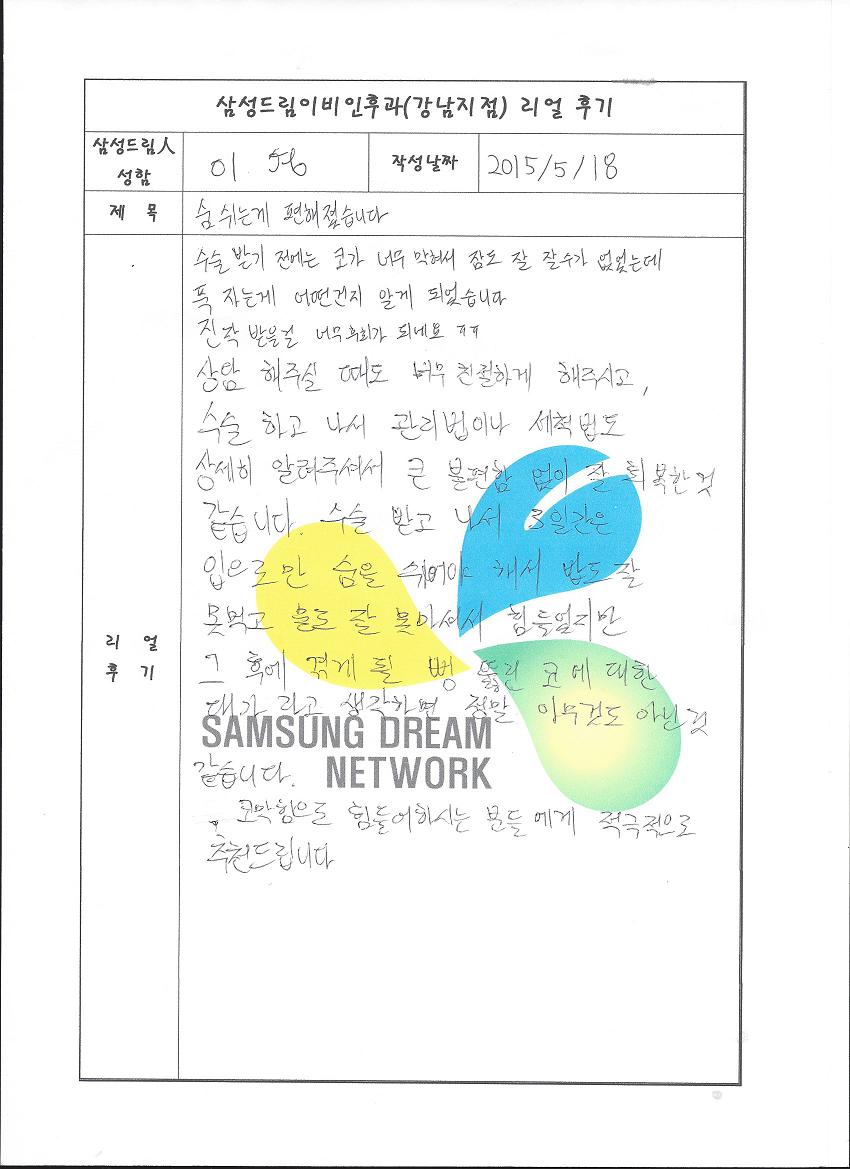 삼성드림이비인후과(강남지점) 리얼 후기
삼성드림人
성함
이
작성날짜
2015/5/18
제 목
숨 쉬는게 편해졌습니다
수술 받기 전에는 코가 너무 막혀서 잠도 잘 잘수가 없었는데
푹 자는게 어떤건지 알게 되었습니다
진작 받을걸 너무 후회가 되네요 ㅠㅠ
상담 해주실 때도 너무 친절하게 해주시고,
수술 하고 나서 관리법이나 세척법도
상세히 알려주셔서 큰 불편함 없이 잘 회복한 것
같습니다. 수술 받고 나서 3일간은
입으로만 숨을 쉬어야 해서 밥도 잘
못먹고 물도 잘 못마셔서 힘들었지만
리 얼
후 기
그 후에 겪게 될 뻥 뚫린 코에 대한
대가 라고 생각하면 정말 아무것도 아닌 것
같습니다.
코막힘으로 힘들어하시는 분들에게 적극적으로
추천드립니다
SAMSUNG DREAM
NETWORK